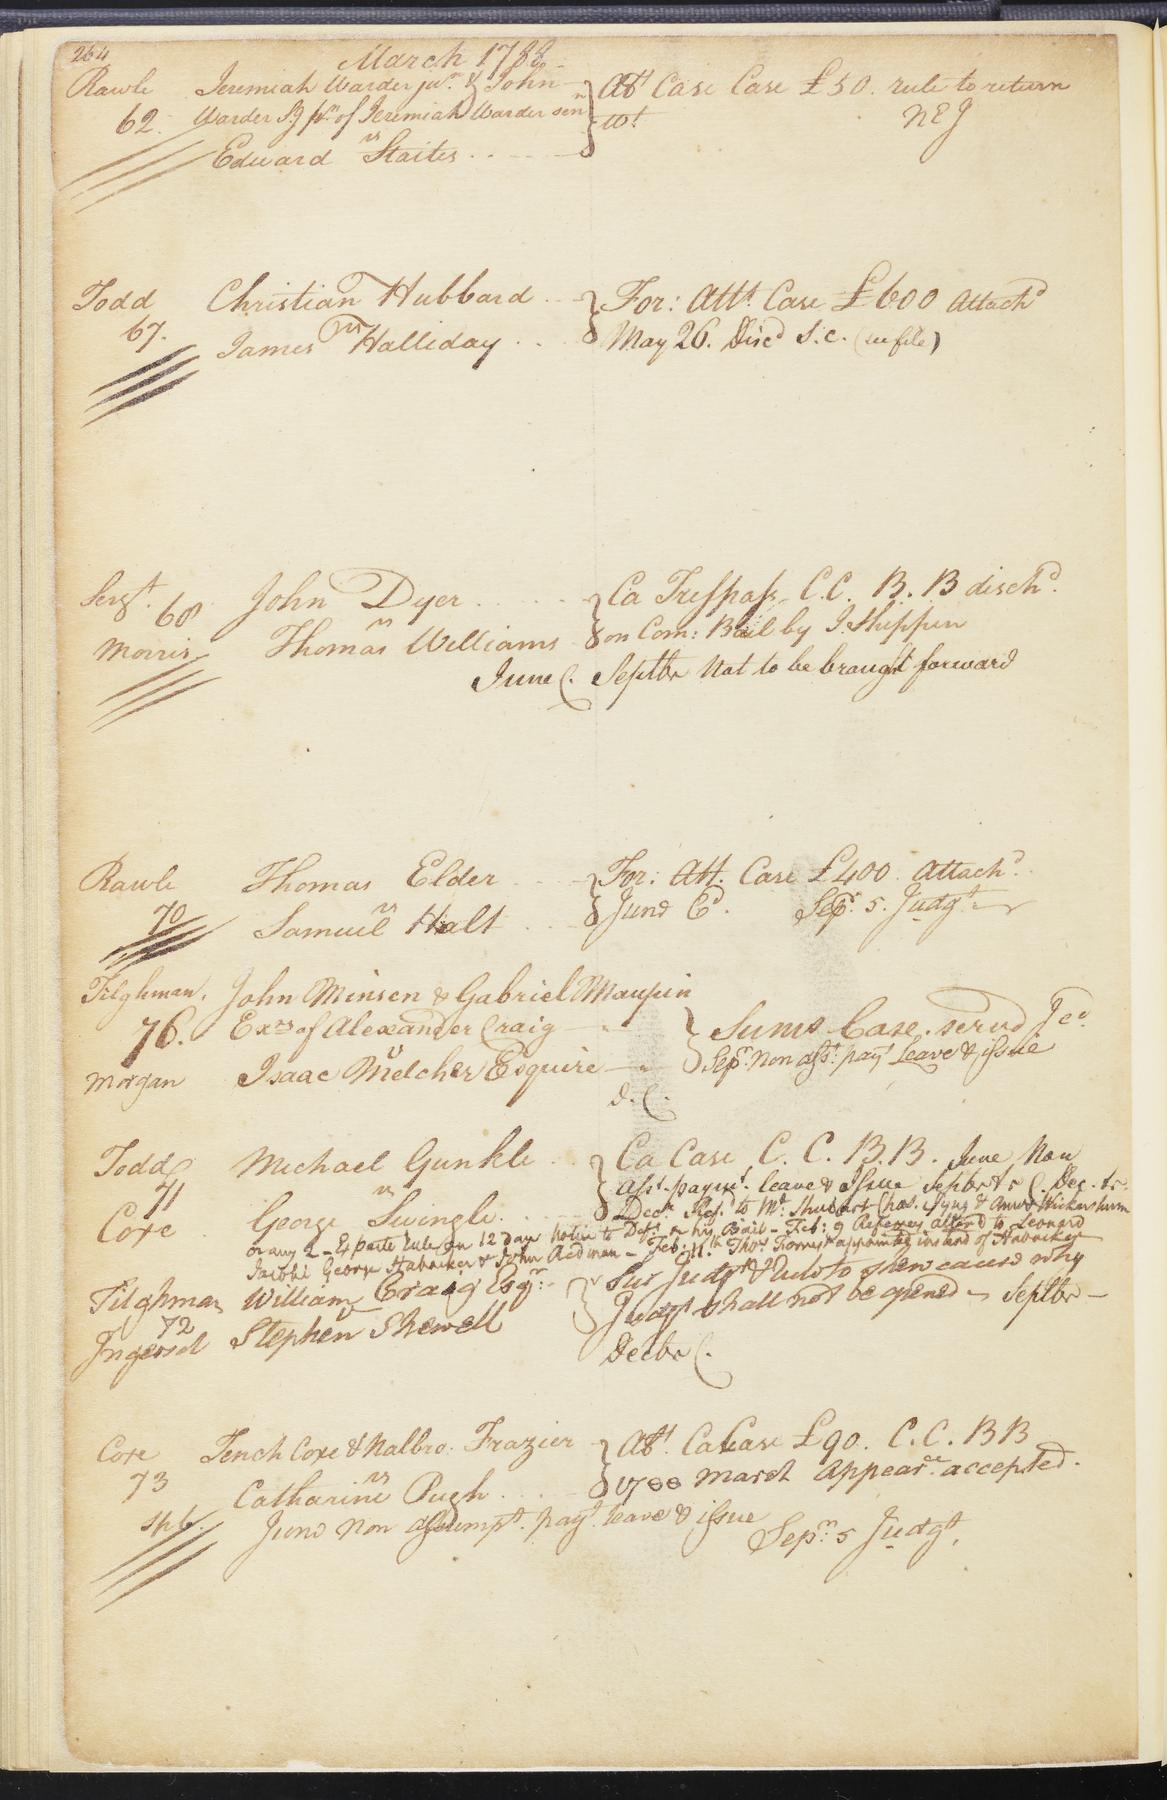 264
March 1788
Rawle Jeremiah Warder junr. & John } Att Case Case £50. rule to return
62. Warder Jr of Jeremiah Warder senr wt. NEJ
vs
Edward Staites
Todd Christian Hubbard } For: Attt. Case £600 Attachd
67. vs
James Halliday May 26. Discd S.C. (see file)
Sergt. 68 John Dyer } Ca Trespass C.C. B.B dischd.
vs
Morris Thomas Williams on Com: Bail by J. Shippen
June C. Septbr Not to be braught forward
Rawle Thomas Elder } For: Att. Case £400. Attachd.
70 vs
Samuel Halt June Cd. Sepr. 5. Judgt
Tilghman. John Minsen & Gabriel Maupin
76. Exrs of Alexander Craig } Sums Case. servd
v
Morgan Isaac Melcher Esquire Sepr. Non asst. payt Leave & issue
d. C.
Todd Michael Gunkle } Ca Case C. C. B.B. June Non
71 vs asst. paymt. leave & Issue Septbr C. Dec.
Coxe George Swingle. Decr. Ref. to Mr. Shubart Chas. Syng & Amos Wickersham
or any 2 - Exparte rule on 12 Day Notice to Deft or his Bail - Feb: 9 Referees altered to Leonard
Jacobi George Habacker & John Redman - Feb: 11th Thos Forrest appointed instead of Habacker
Tilghman William Craig Esqr: } Sur Judgt & Rule to shew cause why
72 v Judgt shall not be opened - Septbr -
Ingersol Stephen Shewell
Decbr C.
Coxe Tench Coxe & Nalbro. Frazier } Att. Ca Case £90. C. C. B B
73 vs
Catharine Pugh 1788 March Appeare. accepted.
June Non assumpt. payt. leave & issue
Sepr. 5 Judgt.